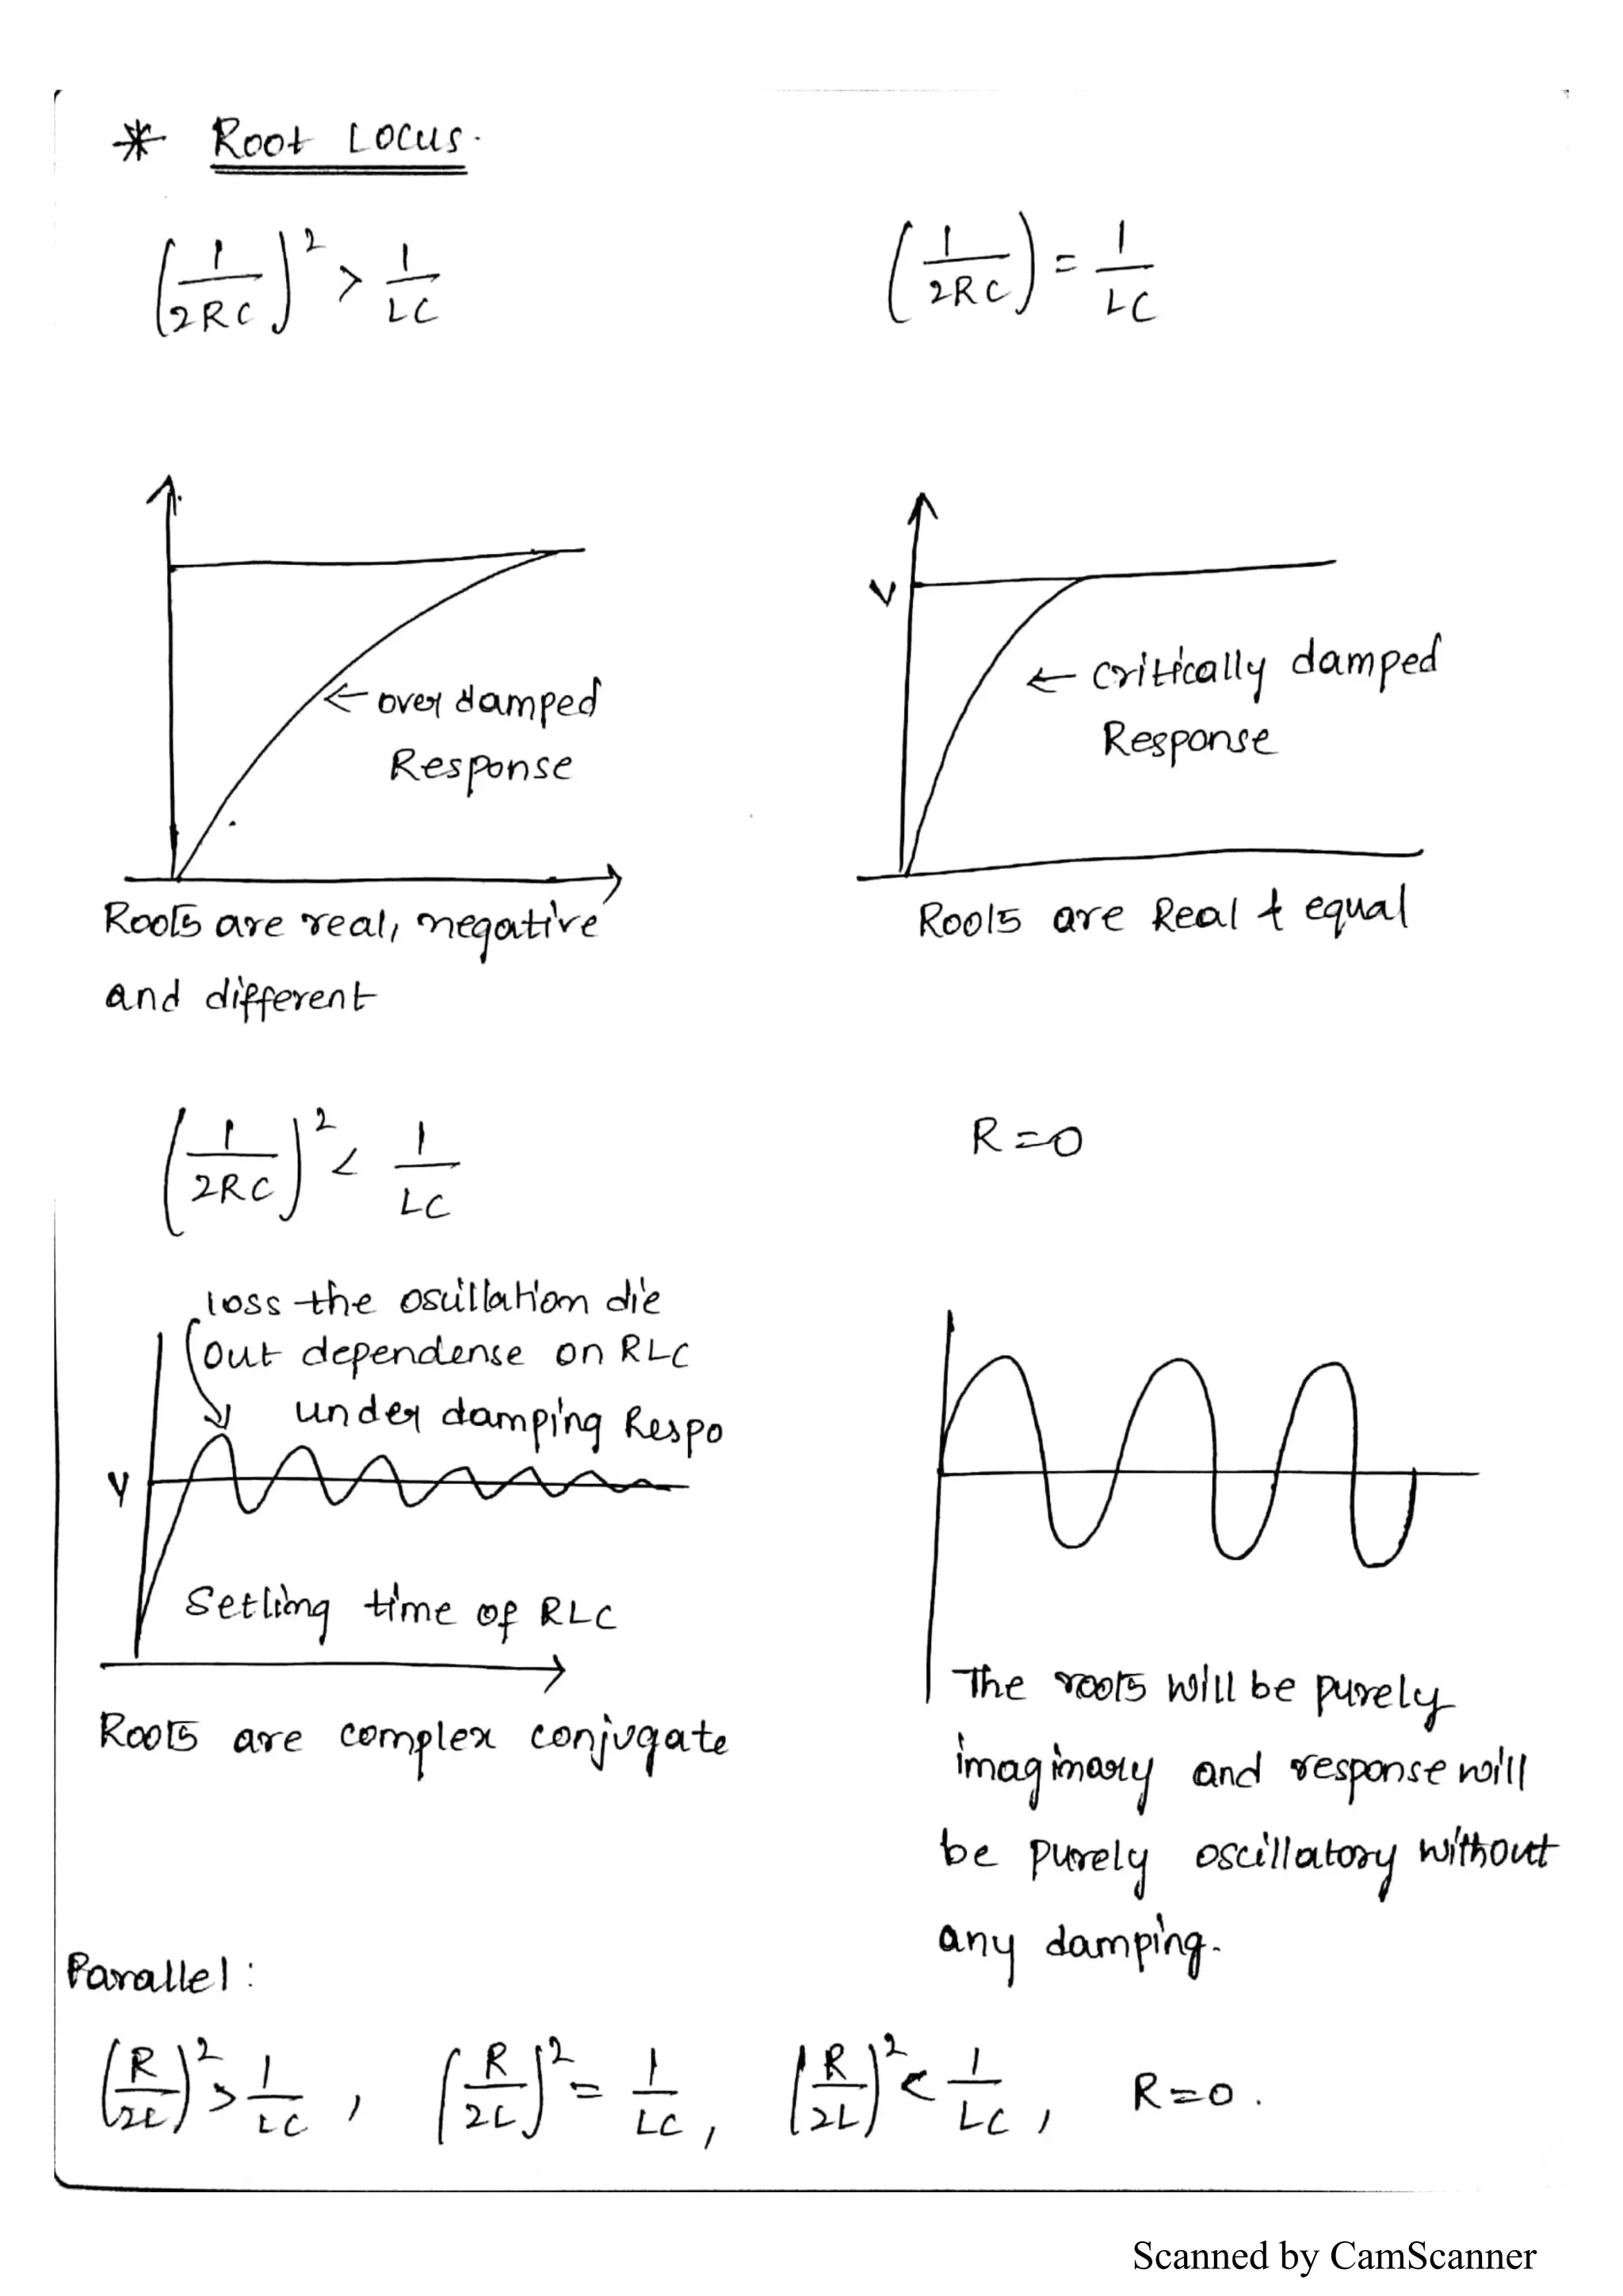 * Root Locus.
(1/2RC)² > 1/LC
(1/2RC) = 1/LC
← over damped
Response
Roots are real, negative
and different
V
← critically damped
Response
Roots are Real & equal
(1/2RC)² < 1/LC
loss the oscillation die
out dependense on RLC
under damping Respo
V
Setling time of RLC
Roots are complex conjugate
R=0
The roots will be purely
imaginary and response will
be purely oscillatory without
any damping.
Parallel:
(R/2L)² > 1/LC , (R/2L)² = 1/LC , (R/2L)² < 1/LC , R=0.
Scanned by CamScanner